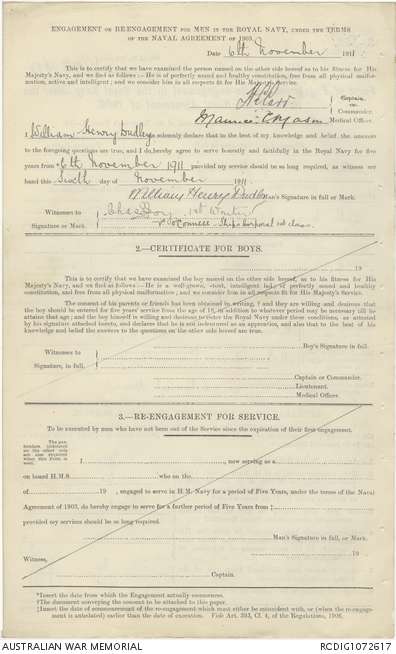 ENGAGEMENT OR RE-ENGAGEMENT FOR MEN IN THE ROYAL NAVY, UNDER THE TERMS
OF THE NAVAL AGREEMENT OF 1903.
Date 6th November 1911
This is to certify that we have examined the person named on the other side hereof as to his fitness for His
Majesty's Navy, and we find as follows:—He is of perfectly sound and healthy constitution, free from all physical malfor-
mation, active and intelligent; and we consider him in all respects fit for His Majesty's Service.
Captain
or
Commander.
Maurice Medical Officer.
I William Henry Dudley solemnly declare that to the best of my knowledge and belief the answers
to the foregoing questions are true, and I do hereby agree to serve honestly and faithfully in the Royal Navy for five
years from 6th November 1911 provided my service should be so long required, as witness my
hand this Sixth day of November 1911
William Henry Dudley Man's Signature in full or Mark.
Witnesses to
Signature or Mark.
1st Writer
Ships Corporal 1st class
2.—CERTIFICATE FOR BOYS.
19
This is to certify that we have examined the boy named on the other side hereof, as to his fitness for His
Majesty's Navy, and we find as follows:—He is a well-grown, stout, intelligent lad, of perfectly sound and healthy
constitution, and free from all physical malformation; and we consider him in all respects fit for His Majesty's Service.
The consent of his parents or friends has been obtained in writing, † and they are willing and desirous that
the boy should be entered for five years' service from the age of 18, in addition to whatever period may be necessary till he
attains that age; and the boy himself is willing and desirous to enter the Royal Navy under these conditions, as attested
by his signature attached hereto, and declares that he is not indentured as an apprentice, and also that to the best of his
knowledge and belief the answers to the questions on the other side are true.
Boy's Signature in full.
Witnesses to
Signature, in full.
Captain or Commander.
Lieutenant.
Medical Officer.
3.—RE-ENGAGEMENT FOR SERVICE.
To be executed by men who have not been out of the Service since the expiration of their first engagement.
I , now serving as a
on board H.M.S. who on the
of 19 , engaged to serve in H.M. Navy for a period of Five Years, under the terms of the Naval
Agreement of 1903, do hereby engage to serve for a further period of Five Years from ‡
provided my services should be so long required.
Man's Signature in full, or Mark.
19
Witness,
Captain.
*Insert the date from which the Engagement actually commences.
†The document conveying the consent to be attached to this paper.
‡Insert the date of commencement of the re-engagement which must either be coincident with, or (when the re-engage-
ment is antedated) earlier than the date of execution. Vide Art. 393, Cl. 4, of the Regulations, 1906.
AUSTRALIAN WAR MEMORIAL
RCDIG1072617